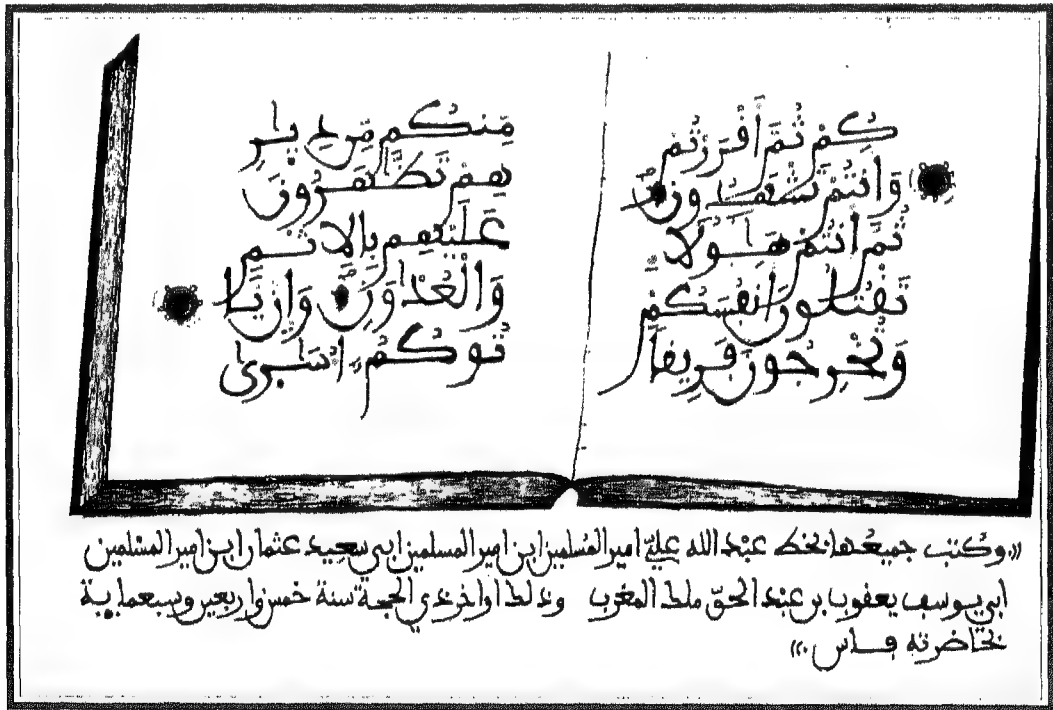 كُمْ ثُمَّ أَقْرَرْتُمْ
وَأَنتُمْ تَشْهَدُونَ
ثُمَّ أَنتُمْ هَـٰؤُلَاءِ
تَقْتُلُونَ أَنفُسَكُمْ
وَتُخْرِجُونَ فَرِيقاً
مِّنكُم مِّن دِيَـٰرِ
هِمْ تَظَّـٰهَرُونَ
عَلَيْهِم بِالِاثْمِ
وَالْعُدْوَٰنِ وَإِن يَّا
تُوكُمُ أُسَـٰرَىٰ
«وكتب جميعها بخط عبد الله عليّ امير المسلمين ابن امير المسلمين ابي سعيد عثمان ابن امير المسلمين
ابي يوسف يعقوب بن عبد الحقّ ملك المغرب وذلك اواخر ذي الحجة سنة خمس واربعين وسبعماية
بحاضرته فاس.»